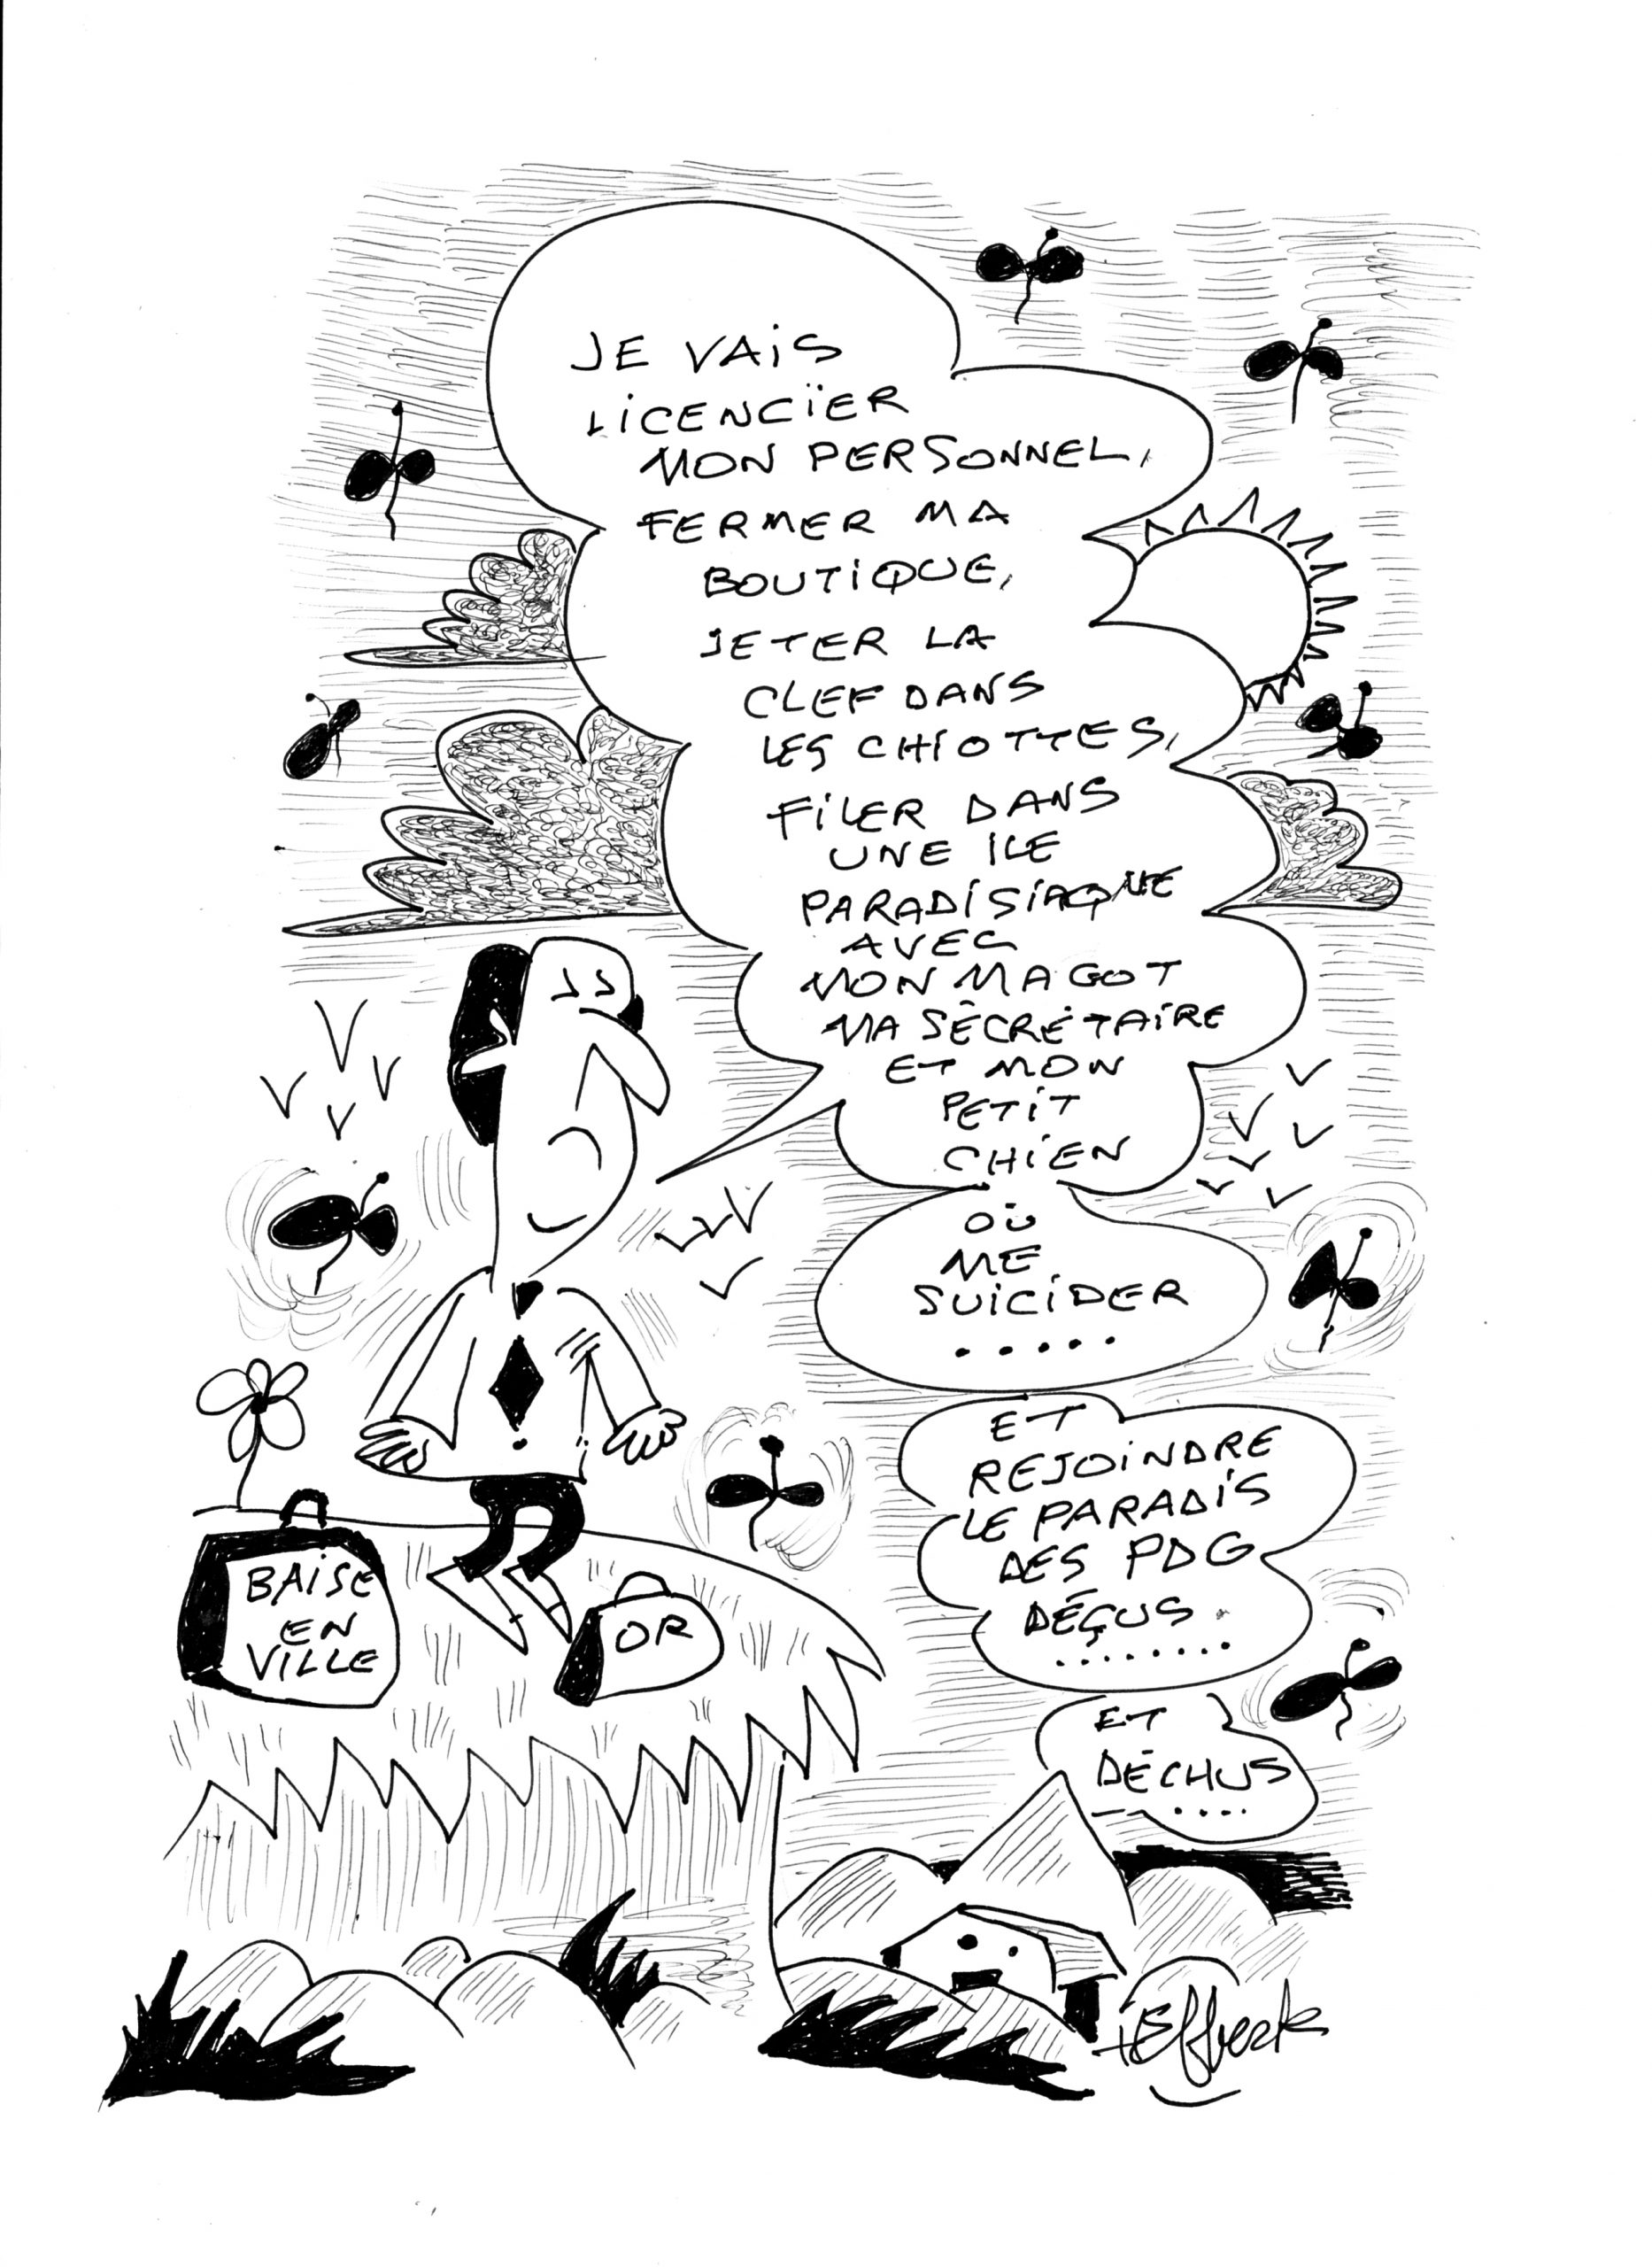 JE VAiS
LiCENCÏER
MON PERSONNEL,
FERMER MA
BOUTiQUE,
JETER LA
CLEF DANS
LES CHiOTTES,
FiLER DANS
UNE iLE
PARADiSiAQUE
AVEC
MON MAGOT
MA SÉCRÉTAiRE
ET MON
PETiT
CHiEN
OÙ
ME
SUiCiDER
.....
ET
REJOiNDRE
LE PARADiS
DES PDG
DÉÇUS.
........
ET
DÉCHUS
....
BAiSE
EN
ViLLE
OR